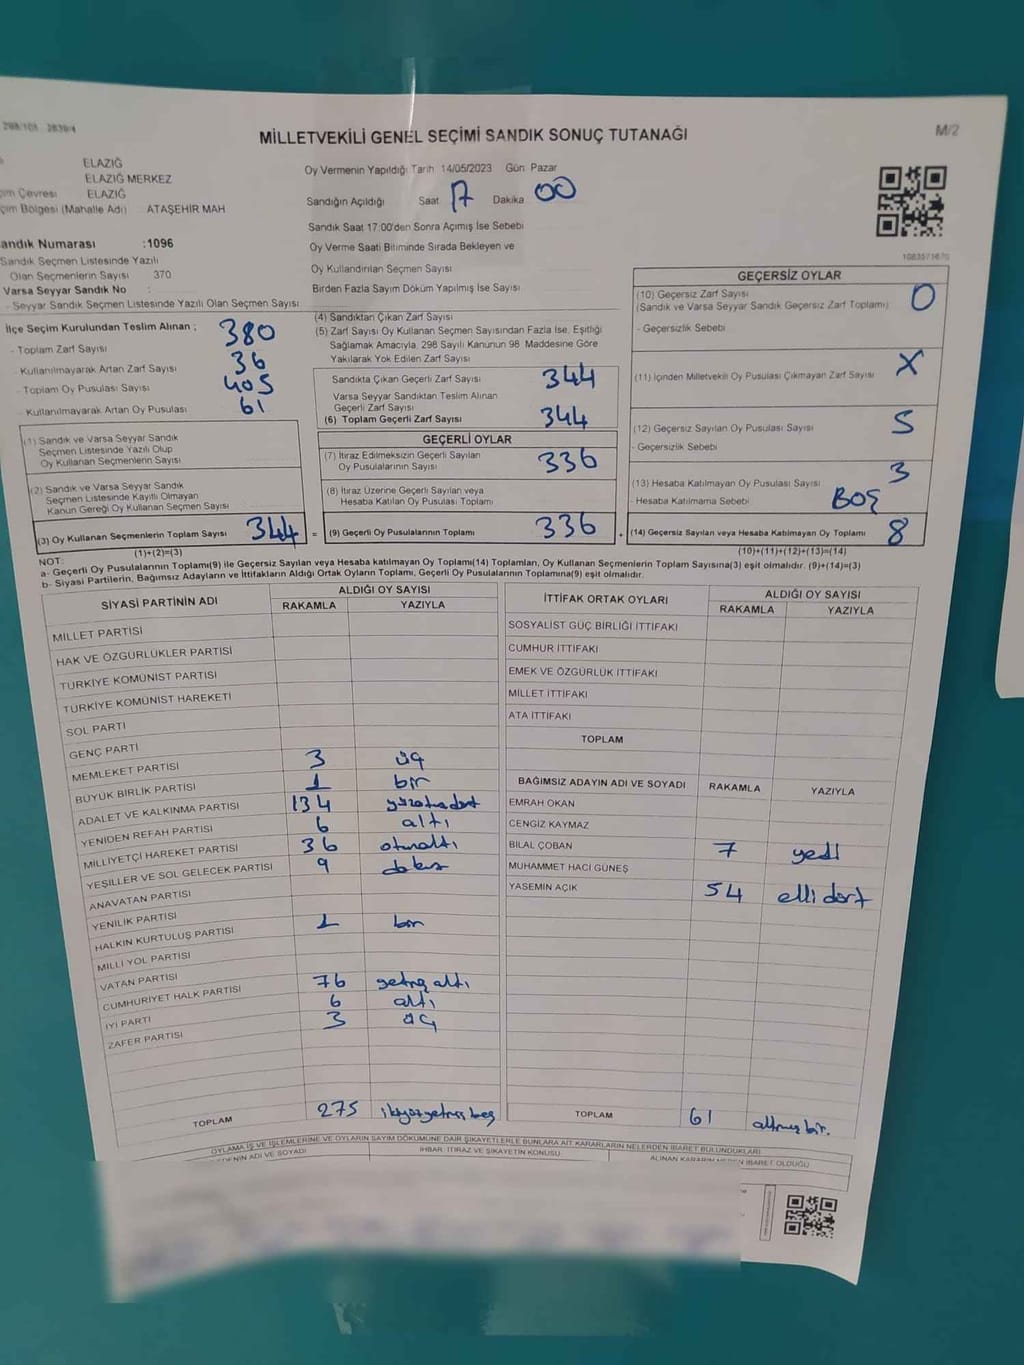 298/101 2839/4
MİLLETVEKİLİ GENEL SEÇİMİ SANDIK SONUÇ TUTANAĞI
M/2
ELAZIĞ
ELAZIĞ MERKEZ
çim Çevresi ELAZIĞ
çim Bölgesi (Mahalle Adı) ATAŞEHİR MAH
Oy Vermenin Yapıldığı Tarih 14/05/2023 Gün Pazar
Sandığın Açıldığı Saat 17 Dakika 00
Sandık Saat 17:00'den Sonra Açımış İse Sebebi
Oy Verme Saati Bitiminde Sırada Bekleyen ve
Oy Kullandırılan Seçmen Sayısı
Birden Fazla Sayım Döküm Yapılmış İse Sayısı
andık Numarası :1096
Sandık Seçmen Listesinde Yazılı
Olan Seçmenlerin Sayısı 370
Varsa Seyyar Sandık No :
- Seyyar Sandık Seçmen Listesinde Yazılı Olan Seçmen Sayısı
İlçe Seçim Kurulundan Teslim Alınan ;
- Toplam Zarf Sayısı 380
- Kullanılmayarak Artan Zarf Sayısı 36
- Toplam Oy Pusulası Sayısı 405
- Kullanılmayarak Artan Oy Pusulası 61
(1) Sandık ve Varsa Seyyar Sandık
Seçmen Listesinde Yazılı Olup
Oy Kullanan Seçmenlerin Sayısı
(2) Sandık ve Varsa Seyyar Sandık
Seçmen Listesinde Kayıtlı Olmayan
Kanun Gereği Oy Kullanan Seçmen Sayısı
(3) Oy Kullanan Seçmenlerin Toplam Sayısı 344 =
(1)+(2)=(3)
(4) Sandıktan Çıkan Zarf Sayısı
(5) Zarf Sayısı Oy Kullanan Seçmen Sayısından Fazla İse, Eşitliği
Sağlamak Amacıyla, 298 Sayılı Kanunun 98 Maddesine Göre
Yakılarak Yok Edilen Zarf Sayısı
Sandıkta Çıkan Geçerli Zarf Sayısı 344
Varsa Seyyar Sandıktan Teslim Alınan
Geçerli Zarf Sayısı
(6) Toplam Geçerli Zarf Sayısı 344
GEÇERLİ OYLAR
(7) İtiraz Edilmeksizin Geçerli Sayılan
Oy Pusulalarının Sayısı 336
(8) İtiraz Üzerine Geçerli Sayılan veya
Hesaba Katılan Oy Pusulası Toplamı
(9) Geçerli Oy Pusulalarının Toplamı 336 +
1083571670
GEÇERSİZ OYLAR
(10) Geçersiz Zarf Sayısı
(Sandık ve Varsa Seyyar Sandık Geçersiz Zarf Toplamı) 0
- Geçersizlik Sebebi
(11) İçinden Milletvekili Oy Pusulası Çıkmayan Zarf Sayısı X
(12) Geçersiz Sayılan Oy Pusulası Sayısı 5
- Geçersizlik Sebebi
(13) Hesaba Katılmayan Oy Pusulası Sayısı 3
- Hesaba Katılmama Sebebi BOŞ
(14) Geçersiz Sayılan veya Hesaba Katılmayan Oy Toplamı 8
(10)+(11)+(12)+(13)=(14)
NOT:
a- Geçerli Oy Pusulalarının Toplamı(9) ile Geçersiz Sayılan veya Hesaba katılmayan Oy Toplamı(14) Toplamları, Oy Kullanan Seçmenlerin Toplam Sayısına(3) eşit olmalıdır. (9)+(14)=(3)
b- Siyasi Partilerin, Bağımsız Adayların ve İttifakların Aldığı Ortak Oyların Toplamı, Geçerli Oy Pusulalarının Toplamına(9) eşit olmalıdır.
SİYASİ PARTİNİN ADI ALDIĞI OY SAYISI
RAKAMLA YAZIYLA
MİLLET PARTİSİ
HAK VE ÖZGÜRLÜKLER PARTİSİ
TÜRKİYE KOMÜNİST PARTİSİ
TÜRKİYE KOMÜNİST HAREKETİ
SOL PARTİ
GENÇ PARTİ
MEMLEKET PARTİSİ 3 üç
BÜYÜK BİRLİK PARTİSİ 1 bir
ADALET VE KALKINMA PARTİSİ 134 yüzotuzdört
YENİDEN REFAH PARTİSİ 6 altı
MİLLİYETÇİ HAREKET PARTİSİ 36 otuzaltı
YEŞİLLER VE SOL GELECEK PARTİSİ 9 dokuz
ANAVATAN PARTİSİ
YENİLİK PARTİSİ
HALKIN KURTULUŞ PARTİSİ 1 bir
MİLLİ YOL PARTİSİ
VATAN PARTİSİ
CUMHURİYET HALK PARTİSİ 76 yetmiş altı
İYİ PARTİ 6 altı
ZAFER PARTİSİ 3 üç
TOPLAM 275 ikiyüzyetmiş beş
İTTİFAK ORTAK OYLARI ALDIĞI OY SAYISI
RAKAMLA YAZIYLA
SOSYALİST GÜÇ BİRLİĞİ İTTİFAKI
CUMHUR İTTİFAKI
EMEK VE ÖZGÜRLÜK İTTİFAKI
MİLLET İTTİFAKI
ATA İTTİFAKI
TOPLAM
BAĞIMSIZ ADAYIN ADI VE SOYADI RAKAMLA YAZIYLA
EMRAH OKAN
CENGİZ KAYMAZ
BİLAL ÇOBAN 7 yedi
MUHAMMET HACI GÜNEŞ
YASEMİN AÇIK 54 elli dört
TOPLAM 61 altmış bir.
OYLAMA İŞ VE İŞLEMLERİNE VE OYLARIN SAYIM DÖKÜMÜNE DAİR ŞİKAYETLERLE BUNLARA AİT KARARLARIN NELERDEN İBARET BULUNDUKLARI
EDENİN ADI VE SOYADI İHBAR, İTİRAZ VE ŞİKAYETİN KONUSU ALINAN KARARIN NEDEN İBARET OLDUĞU